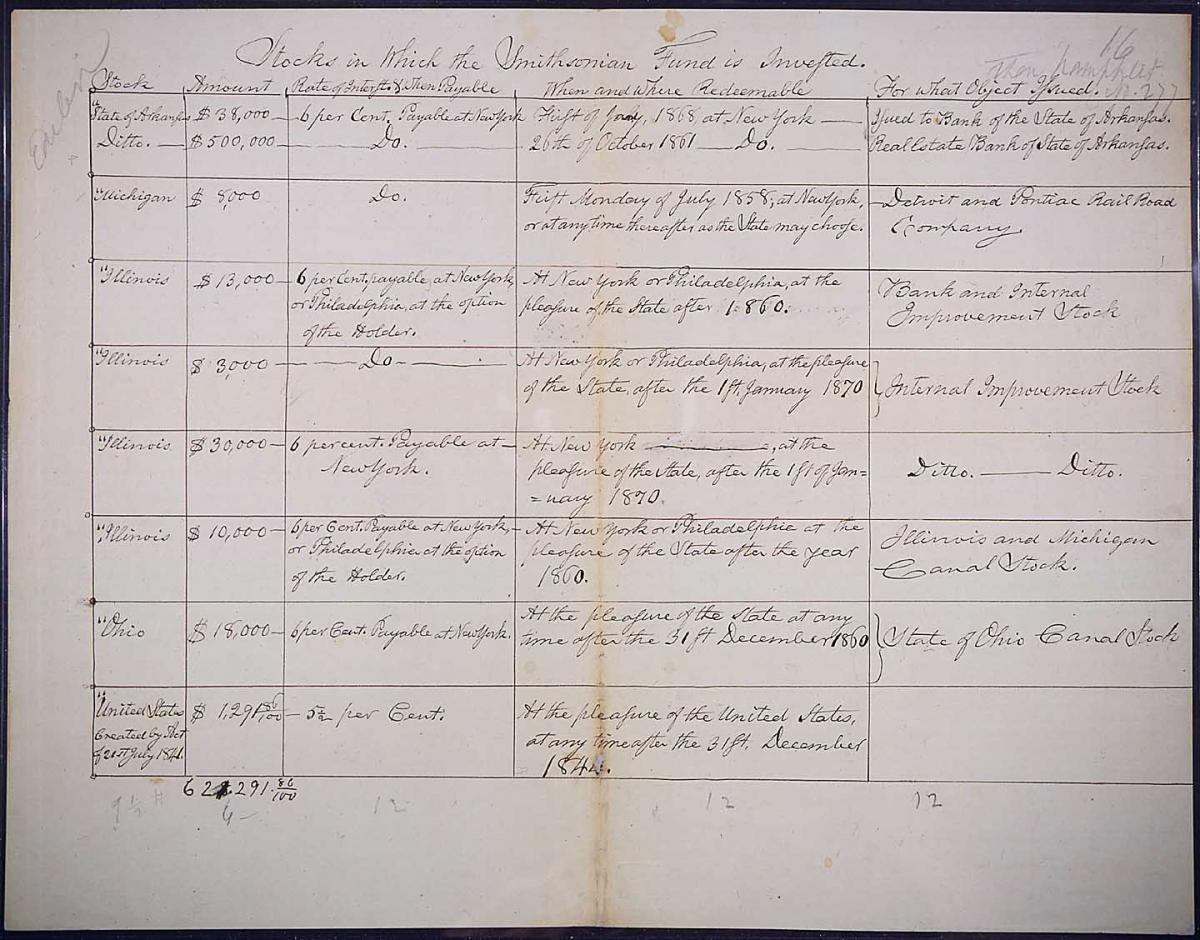 16
Stocks in Which the Smithsonian Fund is Invested.
Stock Amount Rate of Interest & When Payable When and Where Redeemable For what Object Issued.
"State of Arkansas $ 38,000 — 6 per Cent. Payable at New York First of Jany, 1868, at New York — Issued to Bank of the State of Arkansas.
Ditto. — $ 500,000 — Do. — 26th of October 1861 — Do. — Real Estate Bank of State of Arkansas.
"Michigan $ 8,000 Do. First Monday of July 1858, at New York, Detroit and Pontiac Rail Road
or at any time thereafter as the State may choose. Company.
"Illinois $ 13,000 — 6 per Cent. payable, at New York, At New York or Philadelphia, at the Bank and Internal
or Philadelphia, at the option pleasure of the State after 1860. Improvement Stock
of the Holder.
"Illinois $ 3,000 — Do — At New York or Philadelphia, at the pleasure
of the State, after the 1st. January 1870 Internal Improvement Stock
"Illinois $ 30,000 — 6 percent. Payable at — At New York —, at the
New York. pleasure of the State, after the 1st of Jan= Ditto. — Ditto.
=uary 1870.
"Illinois $ 10,000 — 6 per Cent. Payable at New York, — At New York or Philadelphia at the Illinois and Michigan
or Philadelphia at the option pleasure of the State after the year Canal Stock.
of the Holder. 1860.
"Ohio $ 18,000 — 6 per Cent. Payable at New York. At the pleasure of the State at any
time after the 31st December 1860 State of Ohio Canal Stock
"United States $ 1,291 86/100 — 5½ per Cent. At the pleasure of the United States,
Created by Act at any time after the 31st. December
of 21st July 1841. 1844.
621291.86/100
9½ 6 — 12 12 12